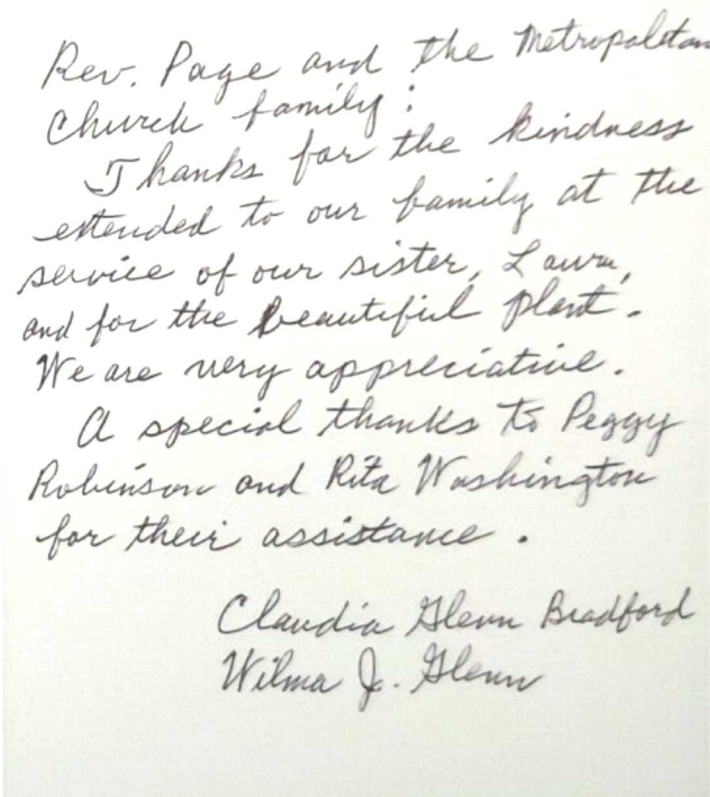 Rev. Page and the Metropolitan
Church family:
Thanks for the kindness
extended to our family at the
service of our sister, Laura,
and for the beautiful plant.
We are very appreciative.
A special thanks to Peggy
Robinson and Rita Washington
for their assistance.
Claudia Glenn Bradford
Wilma J. Glenn